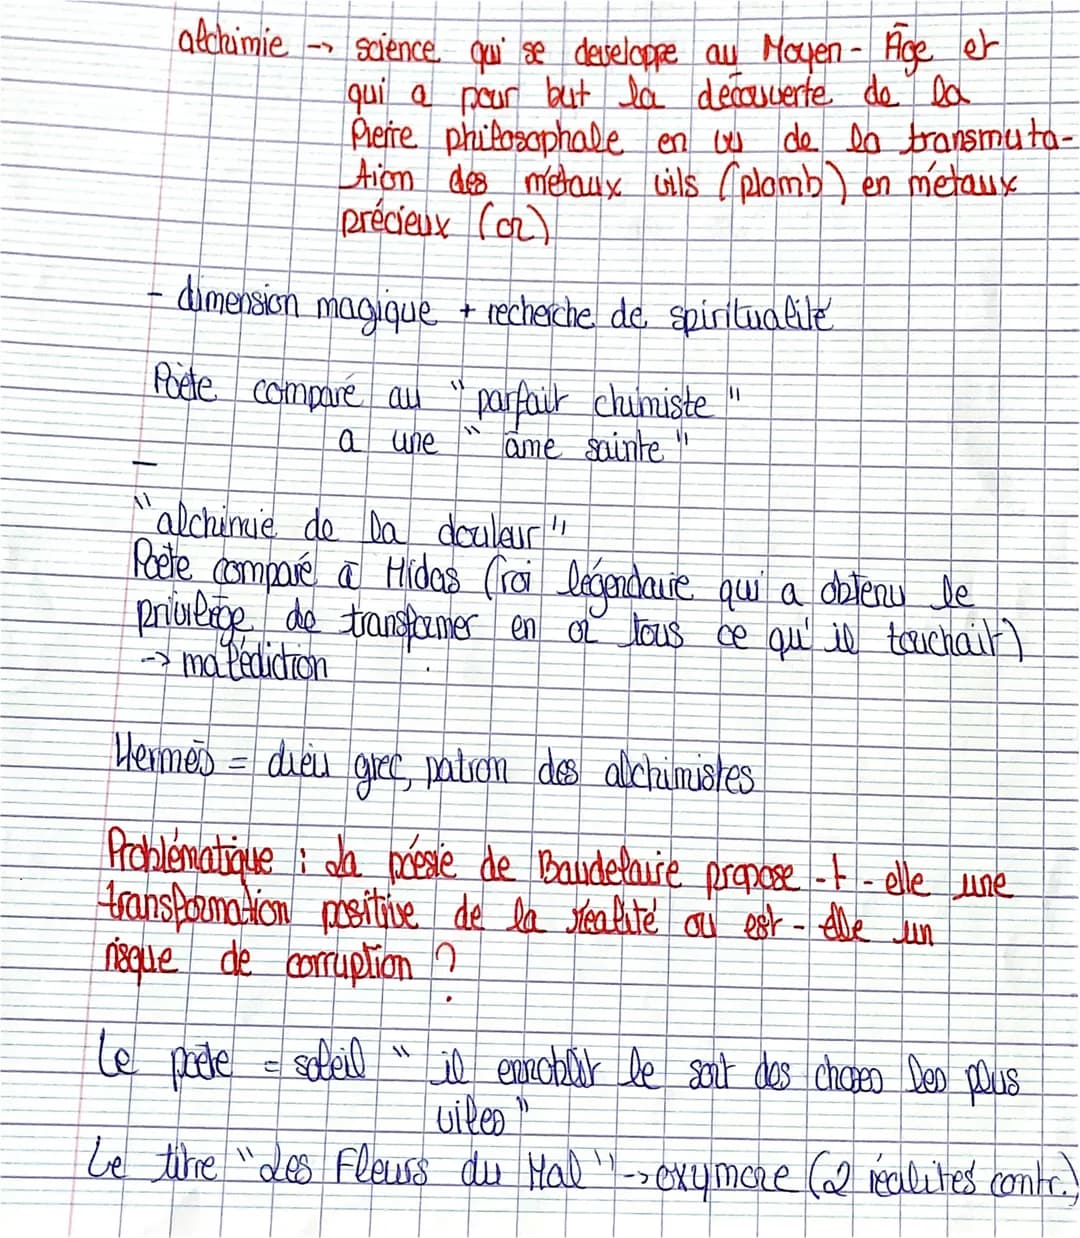 alchimie -> science qui se developpe au Moyen-Âge et
qui a pour but la découverte de la
Pierre philosophale en vu de la transmuta-
tion des métaux vils (plomb) en métaux
précieux (or)
- dimension magique + recherche de spiritualité
Poète comparé au "parfait chimiste"
a une "âme sainte"
"alchimie de la douleur"
Poète comparé à Midas (roi légendaire qui a obtenu le
privilège de transformer en or tous ce qu'il touchait)
-> malédiction
Hermès = dieu grec, patron des alchimistes
Problématique : La poésie de Baudelaire propose-t-elle une
transformation positive de la réalité ou est-elle un
risque de corruption ?
Le poète = soleil "il ennoblit le sort des choses les plus
viles"
Le titre "Les Fleurs du Mal" -> oxymore (2 réalités contr.)